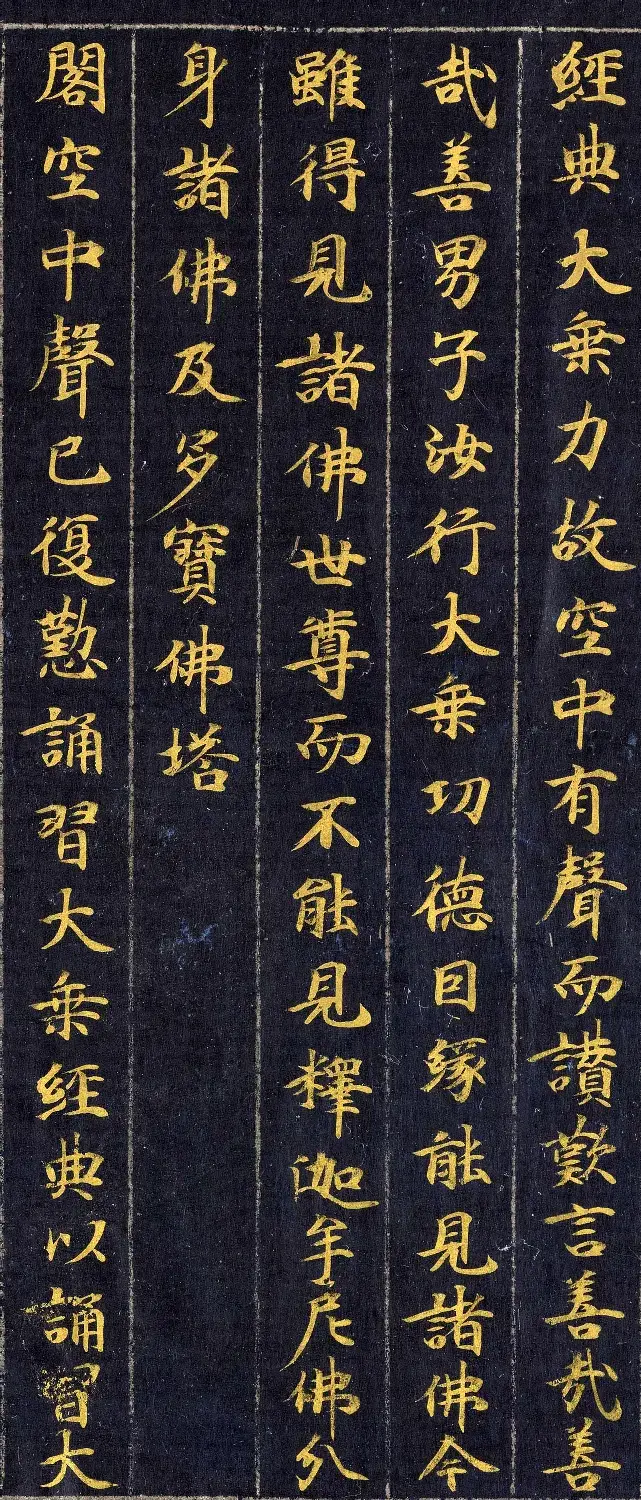 經典大乗力故空中有聲而讃歎言善㢤善
㢤善男子汝行大乗功德囙縁能見諸佛今
雖得見諸佛世尊而不能見釋迦牟尼佛分
身諸佛及多寶佛塔
閣空中聲已復懃誦習大乗經典以誦習大